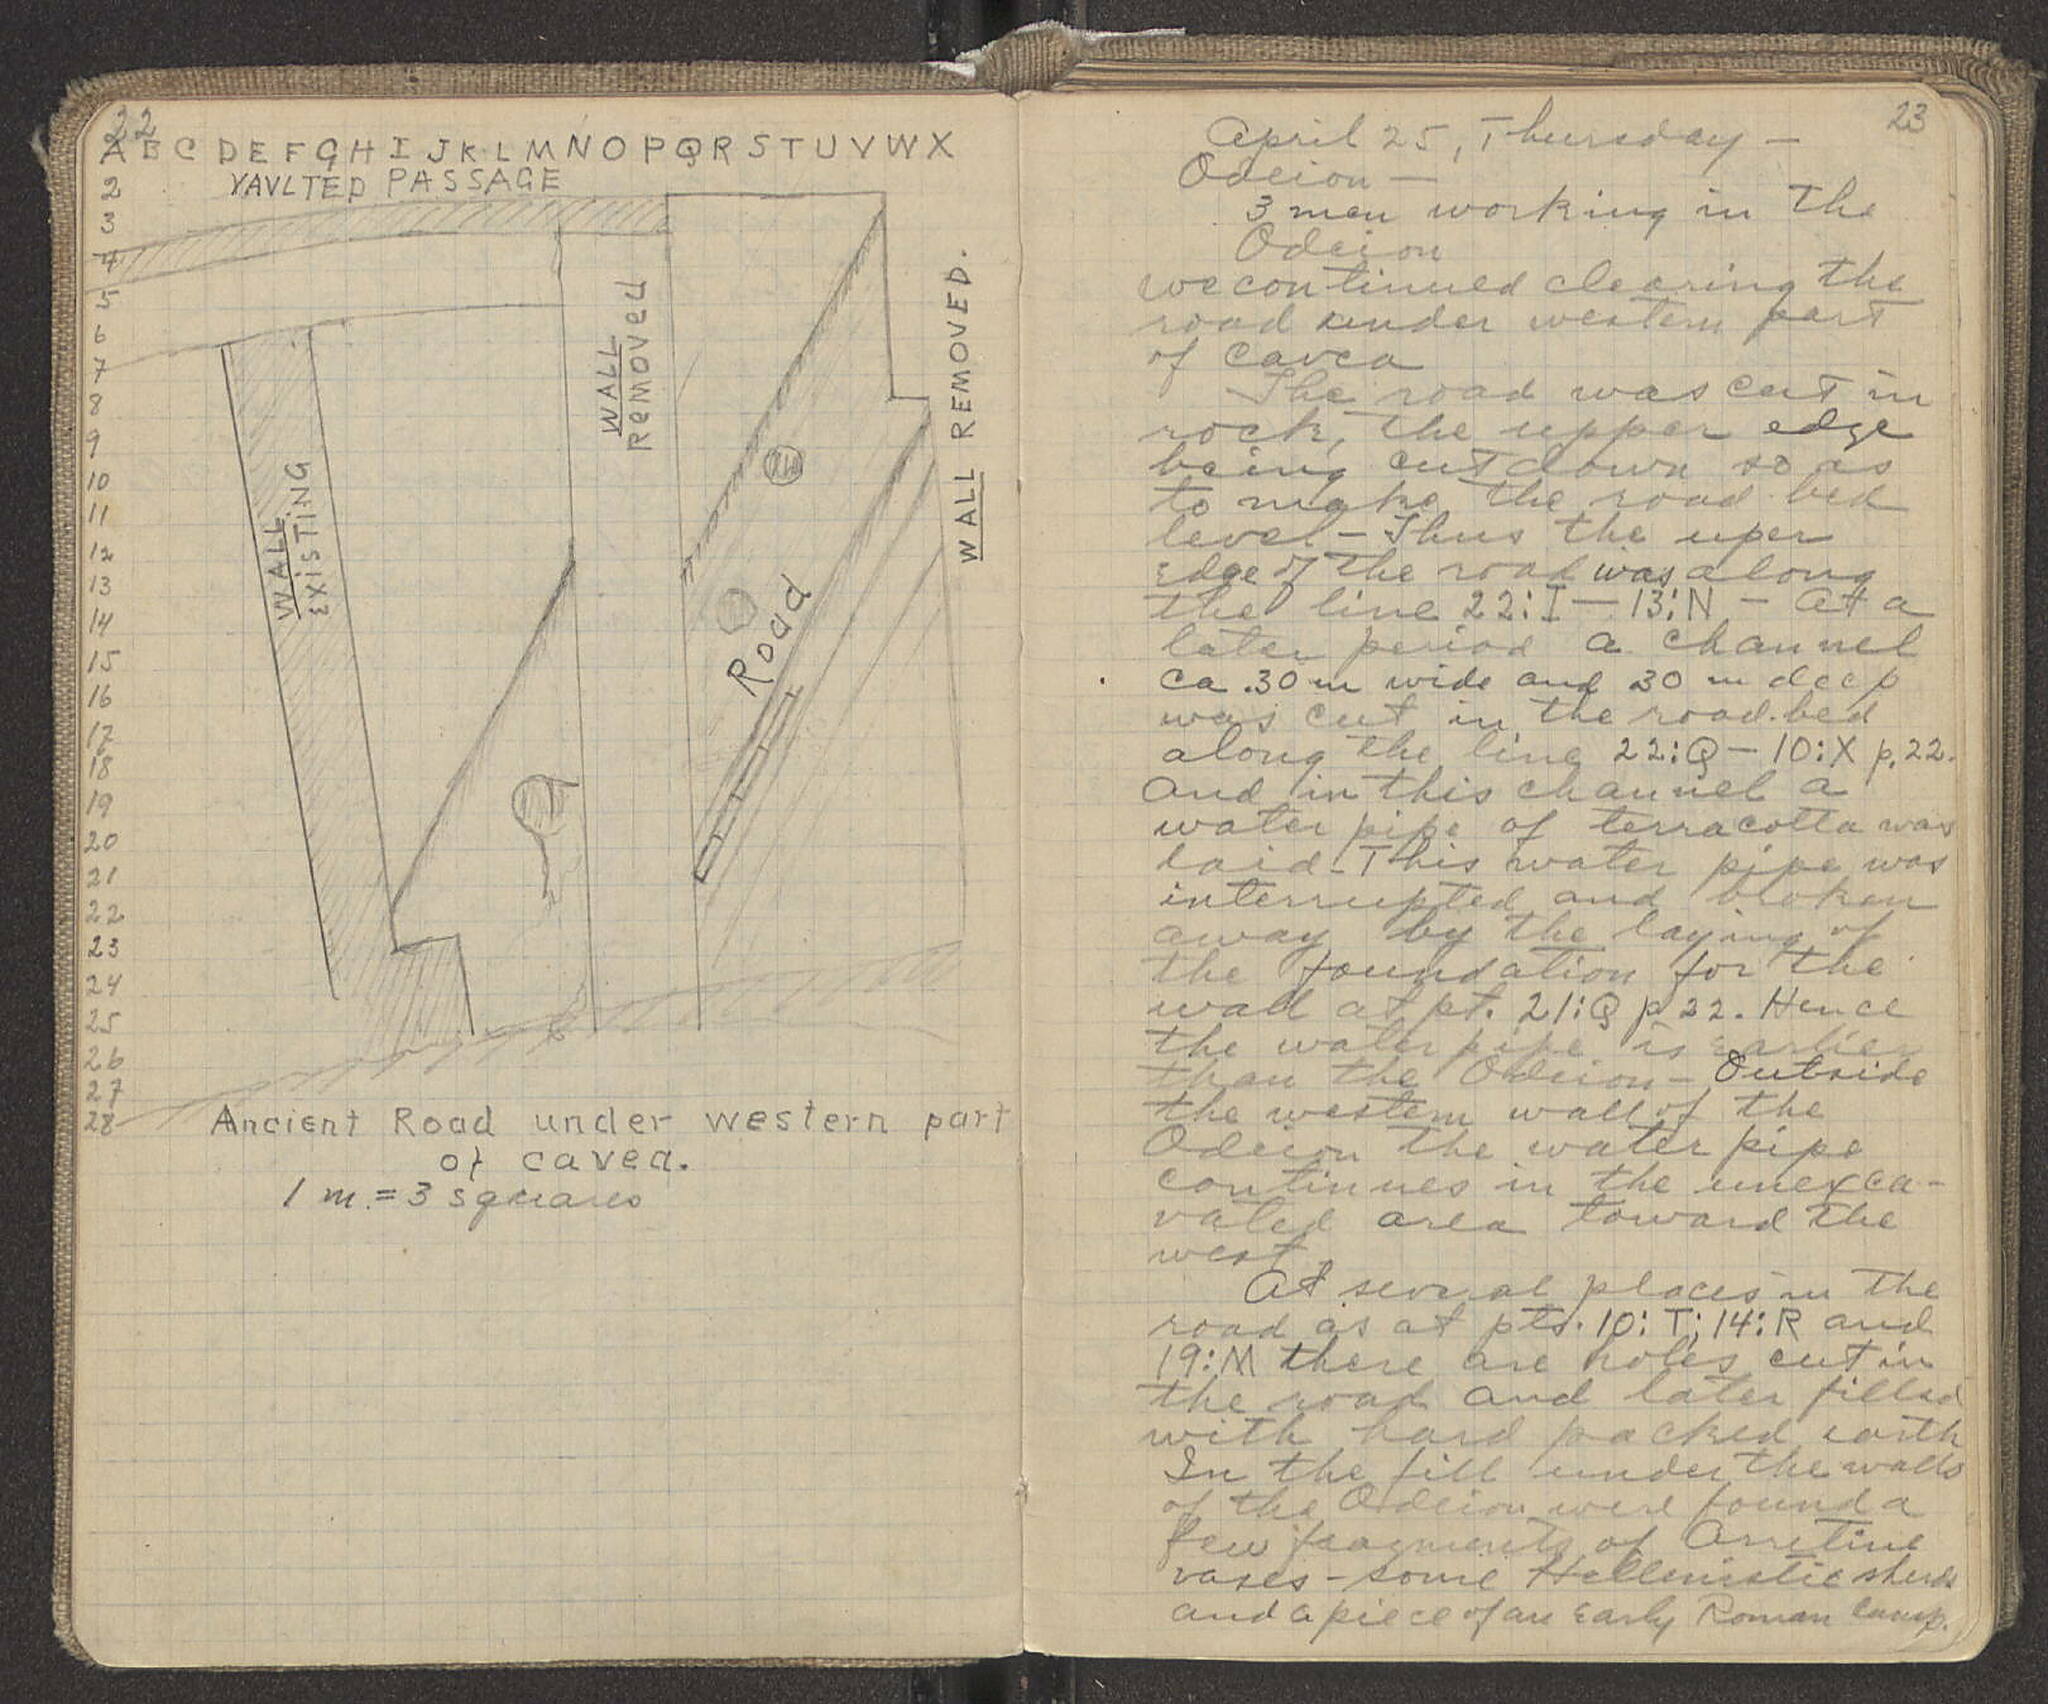 22
A B C D E F G H I J K L M N O P Q R S T U V W X
VAULTED PASSAGE
2
3
4
5
6
7
8
9
10
11
12
13
14
15
16
17
18
19
20
21
22
23
24
25
26
27
28
WALL
EXISTING
WALL
Removed
Road
WALL REMOVED.
Ancient Road under western part
of cavea.
1 m. = 3 squares
23
April 25, Thursday —
Odeion —
3 men working in the
Odeion
we continued clearing the
road under western part
of cavea
The road was cut in
rock, the upper edge
being cut down so as
to make the road bed
level – Thus the uper
edge of the road was along
the line 22:I — 13:N – At a
later period a channel
ca .30 m wide and 30 m deep
was cut in the road-bed
along the line 22:Q — 10:X p.22.
and in this channel a
water pipe of terracotta was
laid – This water pipe was
interrupted and broken
away by the laying of
the foundation for the
wall at pt. 21:Q p 22. Hence
the water pipe is earlier
than the Odeion – Outside
the western wall of the
Odeion the water pipe
continues in the unexca-
vated area toward the
west.
At several places in the
road as at pts. 10:T; 14:R and
19:M there are holes cut in
the road and later filled
with hard packed earth
In the fill under the walls
of the Odeion were found a
few fragments of Arretine
vases – some Hellenistic sherds
and a piece of an Early Roman lamp.